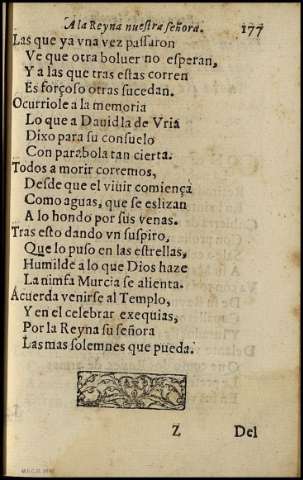 A la Reyna nuestra señora. 177
Las que ya vna vez passaron
Ve que otra boluer no esperan,
Y a las que tras estas corren
Es forçoso otras sucedan.
Ocurriole a la memoria
Lo que a Dauid la de Vria
Dixo para su consuelo
Con parabola tan cierta.
Todos a morir corremos,
Desde que el viuir comiença
Como aguas, que se eslizan
A lo hondo por sus venas.
Tras esto dando vn suspiro,
Que lo puso en las estrellas,
Humilde a lo que Dios haze
La nimfa Murcia se alienta.
Acuerda venirse al Templo,
Y en el celebrar exequias,
Por la Reyna su señora
Las mas solemnes que pueda.
Z Del